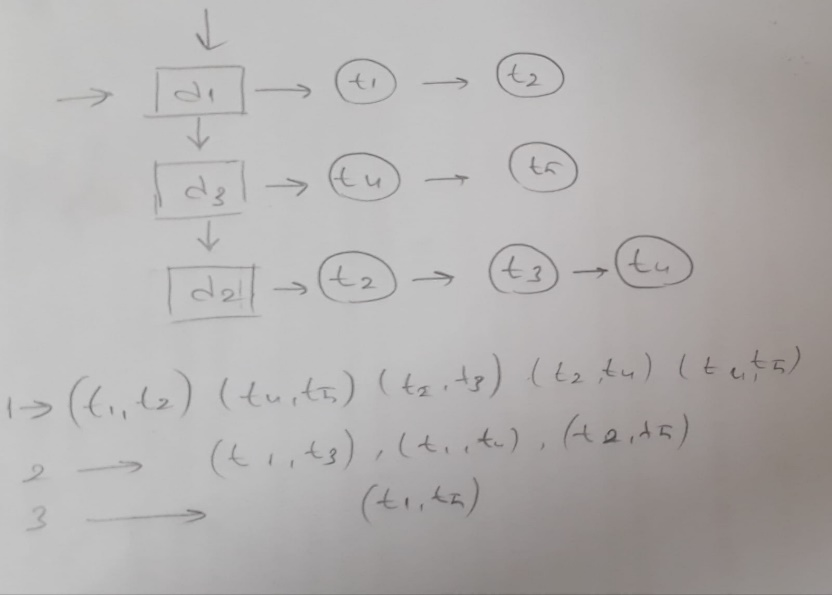 d1 → t1 → t2
d3 → t4 → t5
d2 → t2 → t3 → t4
1→ (t1,t2) (t4,t5) (t2,t3) (t2,t4) (t4,t5)
2 → (t1,t3), (t1,t4), (t2,t5)
3 → (t1,t5)